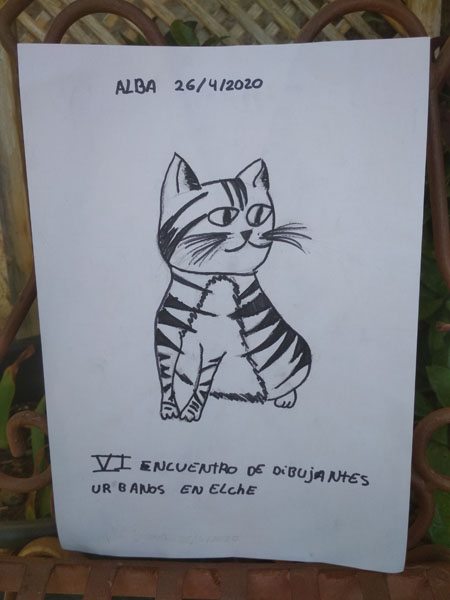 ALBA 26/4/2020
VI ENCUENTRO DE DIBUJANTES
URBANOS EN ELCHE